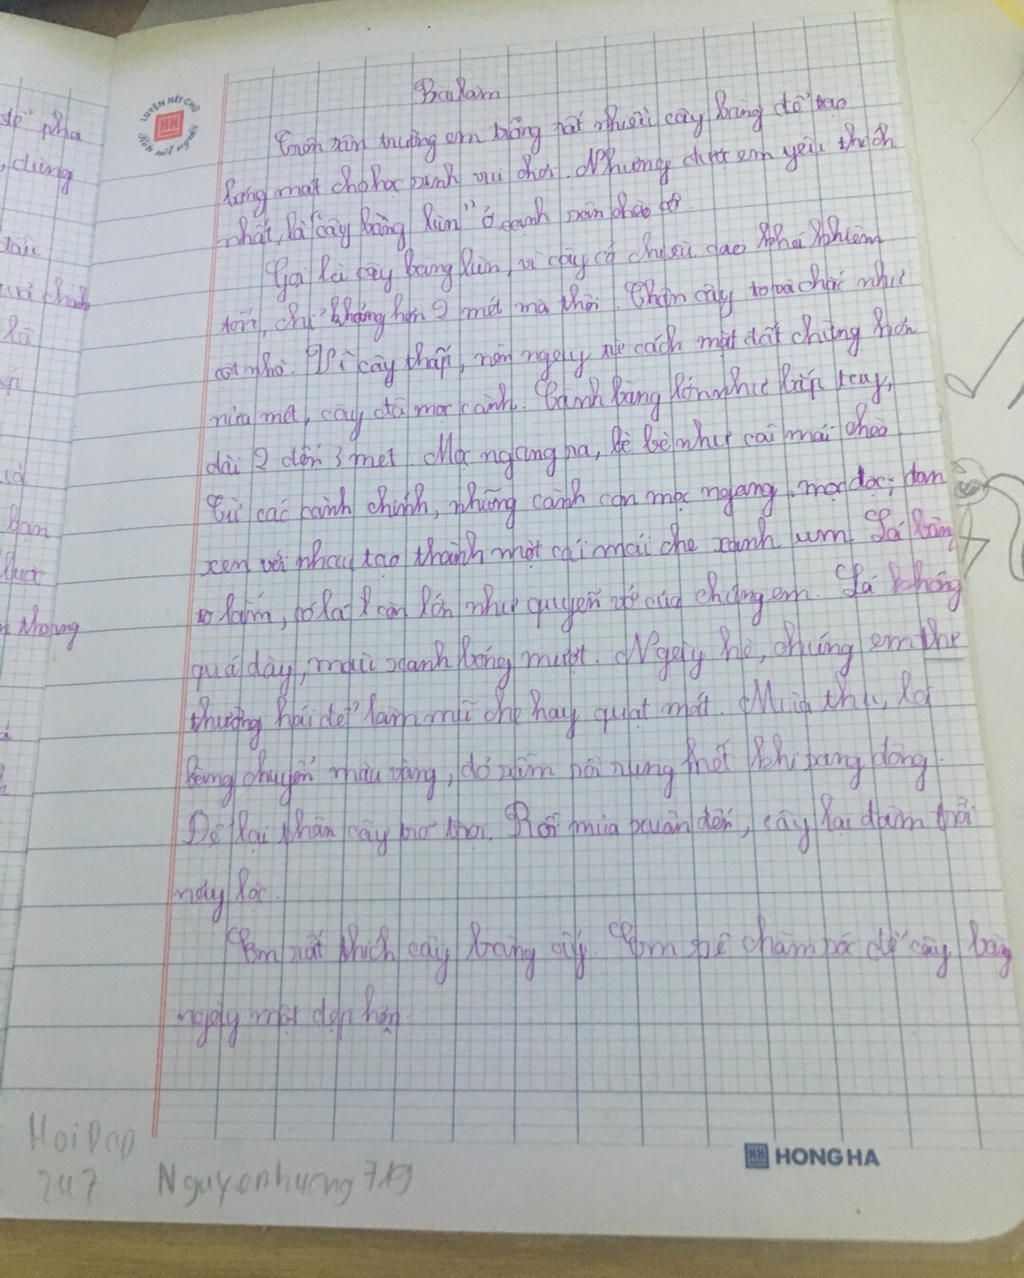 Bài làm
Trên sân trường em trồng rất nhiều cây bàng để tạo
bóng mát cho học sinh vui chơi. Nhưng được em yêu thích
nhất, là "cây bàng lùn" ở cạnh sân chào cờ.
Gọi là cây bàng lùn, vì cây có chiều cao khá khiêm
tốn, chỉ khoảng hơn 2 mét mà thôi. Thân cây to và chắc như
cột nhà. Vì cây thấp, nên ngay cách mặt đất chừng hơn
nửa mét, cây đã mọc cành. Cành bàng lớn như bắp tay,
dài 2 đến 3 mét. Mọc ngang ra, bè bè như cái mái chèo
Từ các cành chính, những cành con mọc ngang, mọc dọc, đan
xen với nhau tạo thành một cái mái che xanh um. Lá bàng
to lắm, có lá còn lớn như quyển vở của chúng em. Lá không
quá dày, màu xanh bóng mượt. Ngày hè, chúng em
thường hái để làm mũ che hay quạt mát. Mùa thu, lá
bàng chuyển màu vàng, đỏ sẫm rồi rụng hết khi sang đông.
Để lại thân cây trơ trọi. Rồi mùa xuân đến, cây lại đâm chồi
nảy lộc.
Em rất thích cây bàng ấy. Em sẽ chăm sóc để cây bàng
ngày một đẹp hơn.
LUYỆN NÉT CHỮ
HH
HONG HA
HoiDap
247 Nguyenhuong7x9
để pha
, dùng